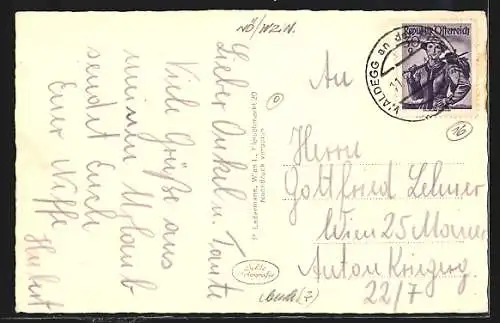 NÖ/WZ.N.
Lieber Onkel u. Tante
Viele Grüße aus
meinem Urlaub
sendet Euch
Euer Neffe
Hubert
P. Ledermann, Wien I., Fleischmarkt 20
Nachdruck verboten
Echte
Fotografie
Republik Österreich
WALDEGG an der
16
An
Herrn
Gottfried Lehner
Wien 25 Mauer
Anton Kriegerg.
22/7